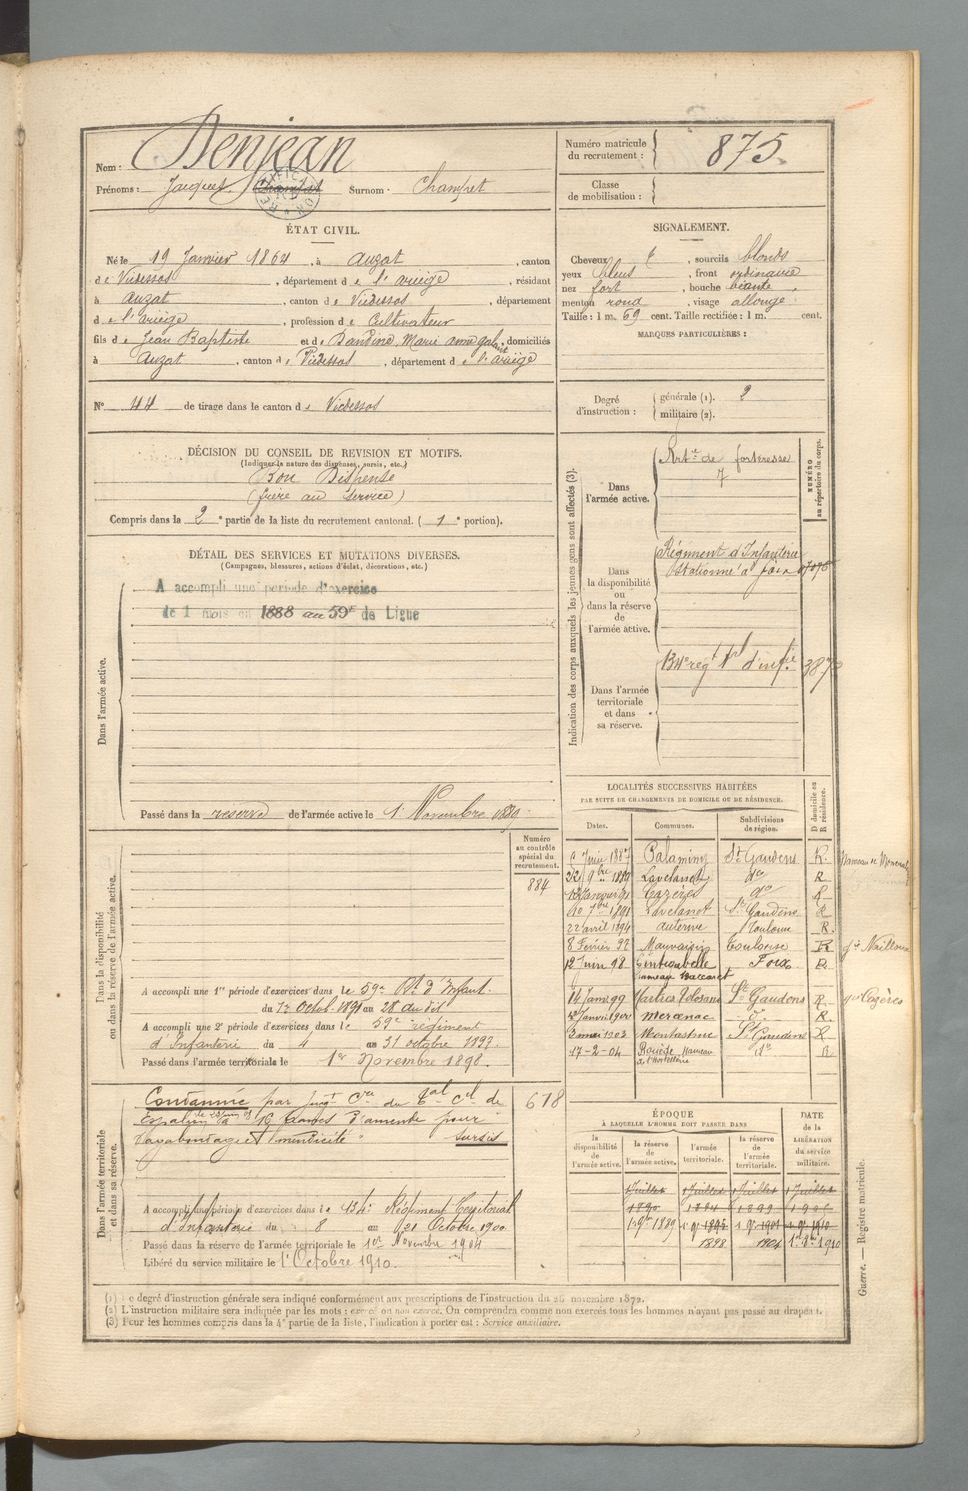 Nom : Denjean
Prénoms : Jacques Champet Surnom : Champet
RECTIFICATION
ÉTAT CIVIL.
Né le 19 Janvier 1864, à Auzat, canton
de Vicdessos, département de l'ariège, résidant
à auzat, canton de Vicdessos, département
de l'ariège, profession de Cultivateur
fils de Jean Baptiste et de Dandine, Marie anne, domiciliés
à Auzat, canton de Vicdessos, département de l'ariège
N° 44 de tirage dans le canton de Vicdessos
DÉCISION DU CONSEIL DE REVISION ET MOTIFS.
(Indiquer la nature des dispenses, sursis, etc.)
Bon Dispensé
(frère au service)
Compris dans la 2e partie de la liste du recrutement cantonal. (1e portion).
DÉTAIL DES SERVICES ET MUTATIONS DIVERSES.
(Campagnes, blessures, actions d'éclat, décorations, etc.)
Dans l'armée active.
A accompli une période d'exercice
de 1 mois en 1888 au 59e de Ligne
Passé dans la réserve de l'armée active le 1 Novembre 1889
Numéro
au contrôle
spécial du
recrutement.
884
Dans la disponibilité
ou dans la réserve de l'armée active.
A accompli une 1re période d'exercices dans le 59e Rt d'Infant.
du 1er Octob. 1891 au 28 au dit
A accompli une 2e période d'exercices dans le 59e régiment
d'Infanterie du 4 au 31 octobre 1893
Passé dans l'armée territoriale le 1er Novembre 1898.
Dans l'armée territoriale
et dans sa réserve.
Condamné par Jugt Cre du Bal Cel de 618
à 16 francs d'amende pour
vagabondage et mendicité sursis
A accompli une période d'exercices dans le 134e Régiment Territorial
d'Infanterie du 8 au 21 Octobre 1900
Passé dans la réserve de l'armée territoriale le 1er Novembre 1904
Libéré du service militaire le 1er Octobre 1910.
Numéro matricule
du recrutement : 875.
Classe
de mobilisation :
SIGNALEMENT.
Cheveux, sourcils blonds
yeux bleus, front ordinaire
nez fort, bouche béante,
menton rond, visage allongé
Taille : 1 m. 69 cent. Taille rectifiée : 1 m. cent.
MARQUES PARTICULIÈRES :
Degré
d'instruction :
générale (1). 2
militaire (2).
Indication des corps auxquels les jeunes gens sont affectés (3).
NUMÉRO
au répertoire du corps.
Dans
l'armée active.
Artie de forteresse
7
Dans
la disponibilité
ou
dans la réserve
de
l'armée active.
Régiment d'Infanterie
Stationné à Foix
Dans l'armée
territoriale
et dans
sa réserve.
134e régt trl d'infie
LOCALITÉS SUCCESSIVES HABITÉES
PAR SUITE DE CHANGEMENTS DE DOMICILE OU DE RÉSIDENCE.
Dates. Communes. Subdivisions de région. D domicile ou R résidence.
Juin 1887 Palaminy St Gaudens R.
9bre 1889 Lavelanet do R
Janvier 91 Cazères do R
10 7bre 1891 Lavelanet St Gaudens R
22 avril 1894 auterive Toulouse R.
8 Février 98 Mauvaisin Toulouse R
12 Juin 98 Gintrabelle Foix R
14 Janv 99 Martres Tolosane St Gaudens R. gie Cazères
Janvier 1901 Meranac d° R.
3 mai 1903 Montastruc St Gaudens R
17-2-04 Rouède Hameau do R
ÉPOQUE
À LAQUELLE L'HOMME DOIT PASSER DANS
DATE
de la
LIBÉRATION
du service
militaire.
la
disponibilité
de
l'armée active.
la réserve
de
l'armée active.
l'armée
territoriale.
la réserve
de
l'armée
territoriale.
1 Juillet 1 Juillet 1 Juillet 1 Juillet
1890 1884 1899
1 9e 1889 1 9e 1895 1 9e 1901 1 9e 1910
1898 1904 1er 8bre 1910
Guerre. — Registre matricule.
(1) Le degré d'instruction générale sera indiqué conformément aux prescriptions de l'instruction du 26 novembre 1872.
(2) L'instruction militaire sera indiquée par les mots : exercé ou non exercé. On comprendra comme non exercés tous les hommes n'ayant pas passé au drapeau.
(3) Pour les hommes compris dans la 4e partie de la liste, l'indication à porter est : Service auxiliaire.